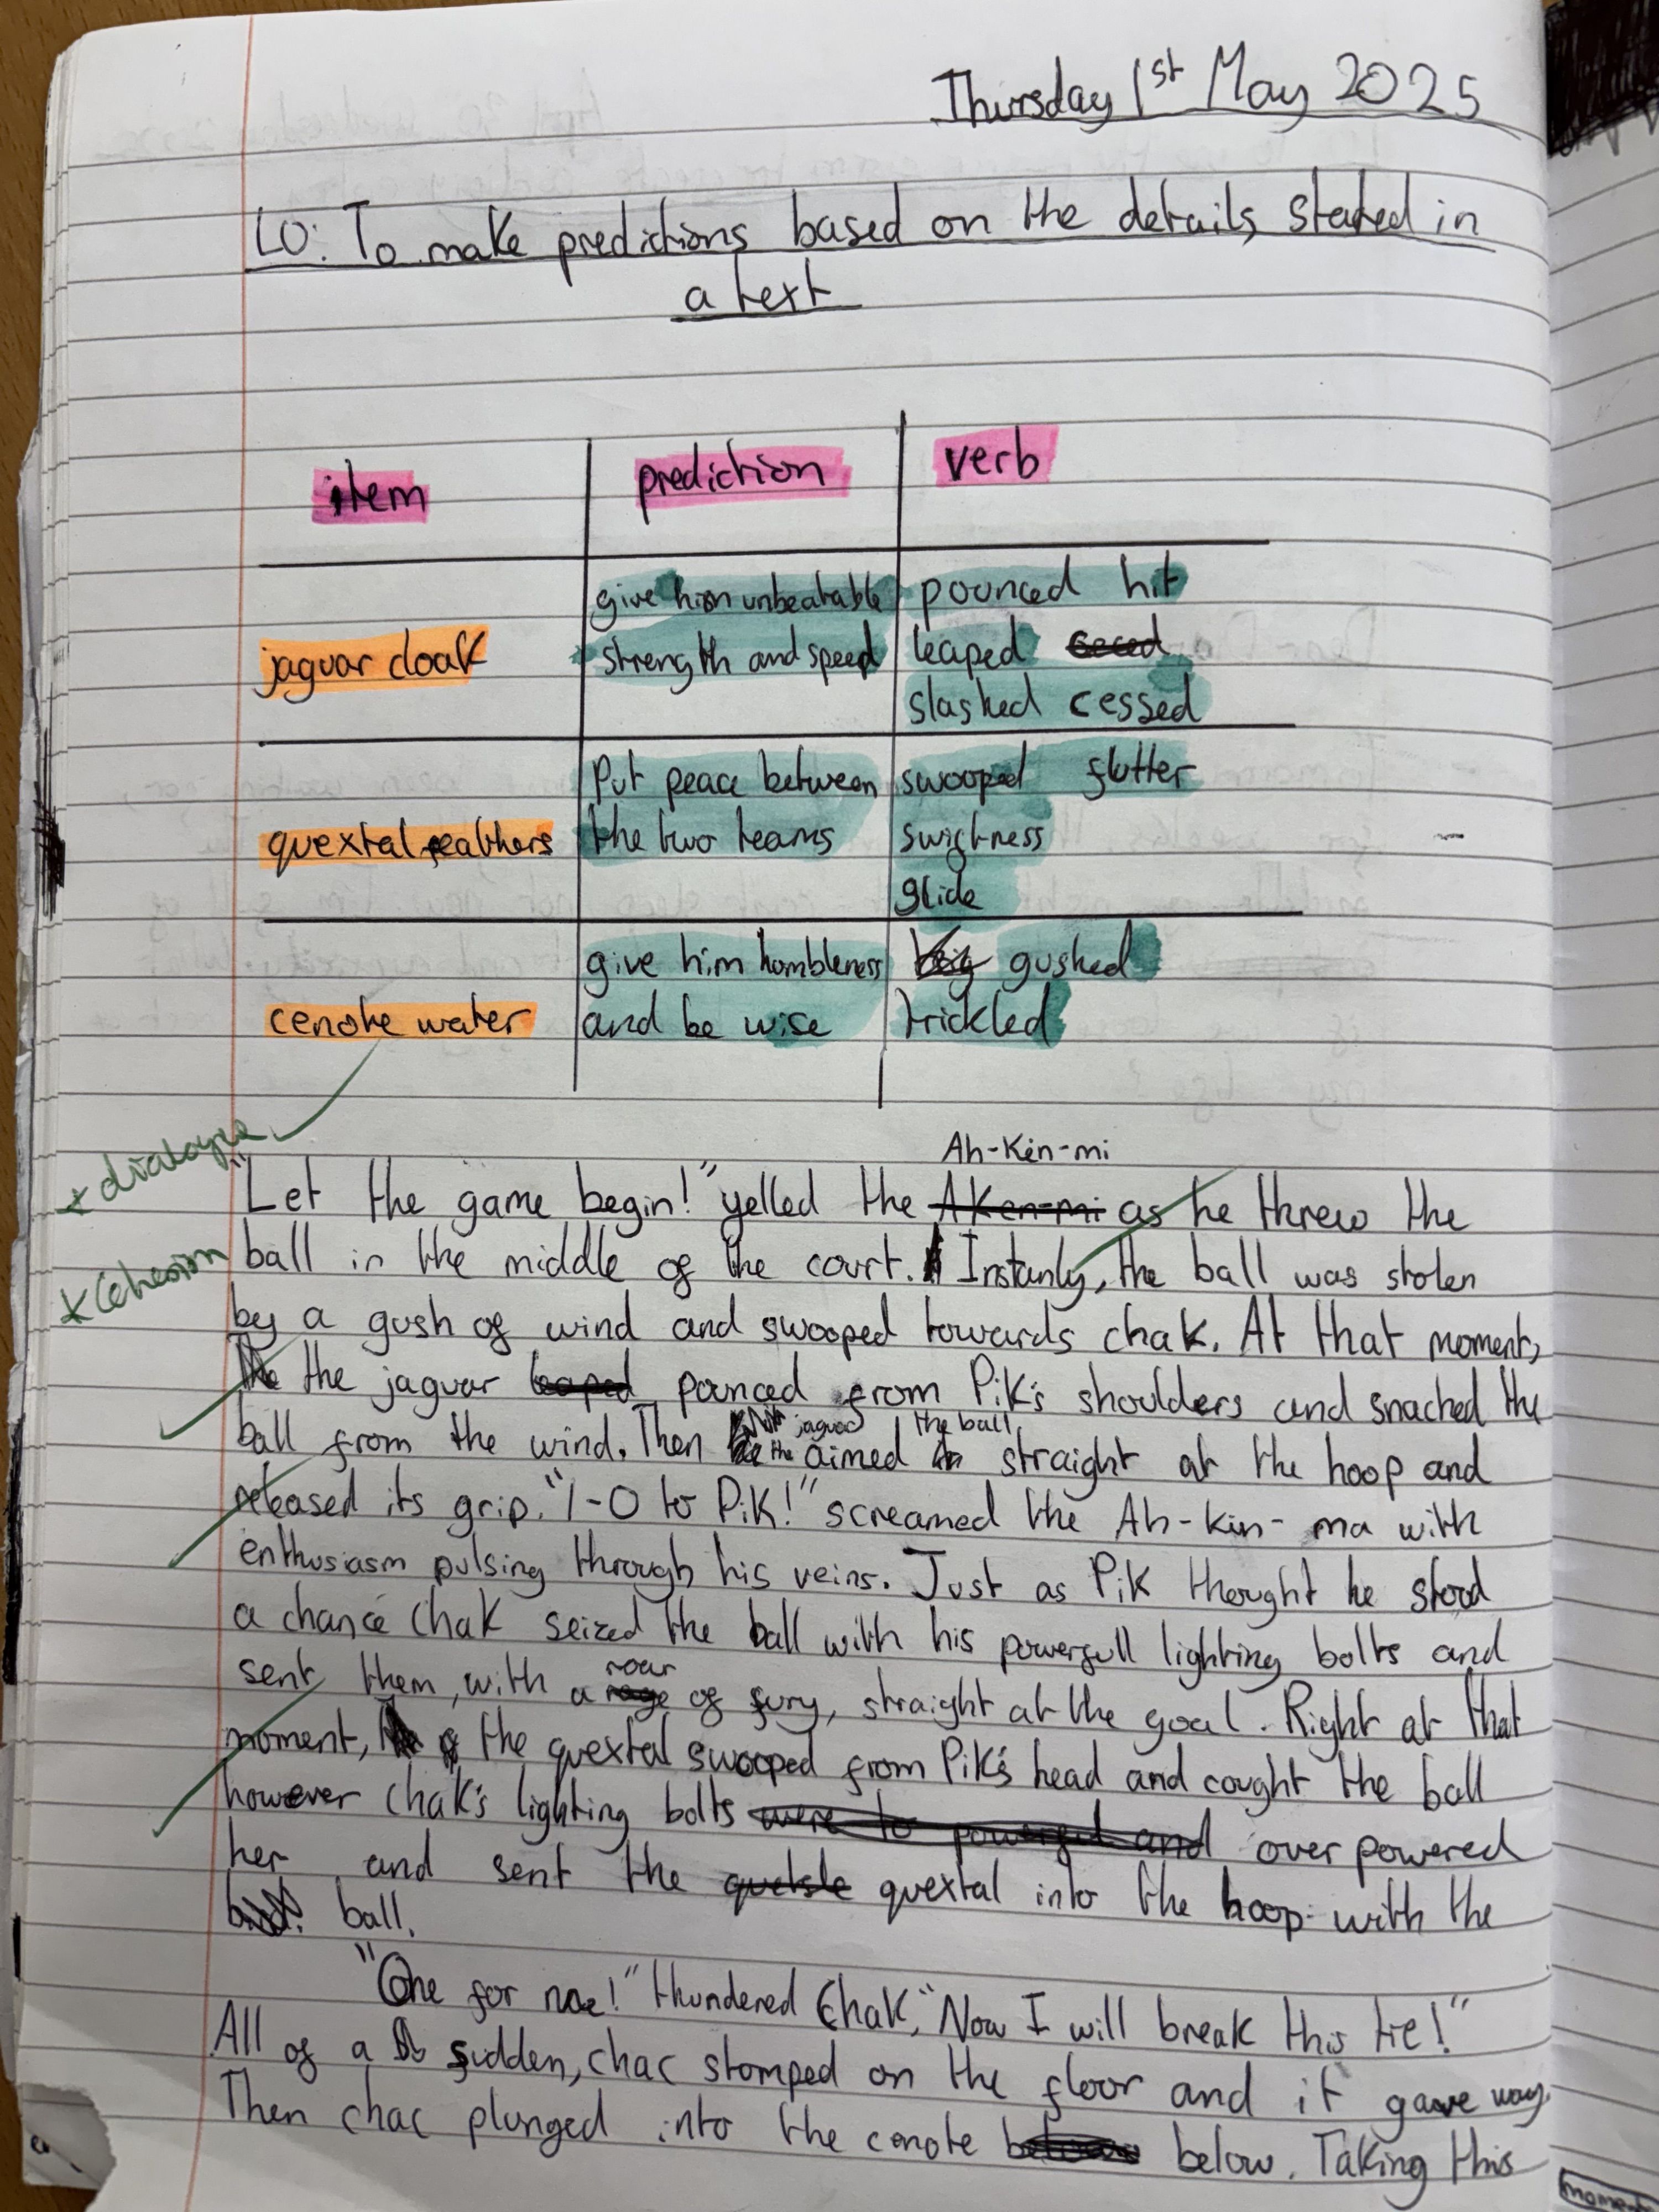 Thursday 1st May 2025
LO: To make predictions based on the details stated in
a text
item prediction verb
give him unbeatable pounced hit
jaguar cloak strength and speed leaped
slashed cessed
Put peace between swooped flutter
quextal feathers the two teams swiftness
glide
give him hombleness gushed
cenote water and be wise trickled
* dialogue
Ah-Kin-mi
"Let the game begin!" yelled the AKen-mi as he threw the
* Cohesion
ball in the middle of the court. Instanly, the ball was stolen
by a gush of wind and swooped towards chak. At that moment,
the jaguar leaped pounced from Pik's shoulders and snached the
jaguar the ball
ball from the wind. Then the aimed straight at the hoop and
released its grip. "1-0 to Pik!" screamed the Ah-kin-ma with
enthusiasm pulsing through his veins. Just as Pik thought he stood
a chance Chak seized the ball with his powerfull lighting bolts and
roar
sent them, with a rage of fury, straight at the goal. Right at that
moment, the quextal swooped from Pik's head and cought the ball
however Chak's lighting bolts were to powerful and over powered
her and sent the quextal into the hoop with the
ball.
"One for me!" thundered Chak, "Now I will break this tie!"
All of a sudden, chac stomped on the floor and it gave way.
Then chac plunged into the cenote below. Taking this
moment